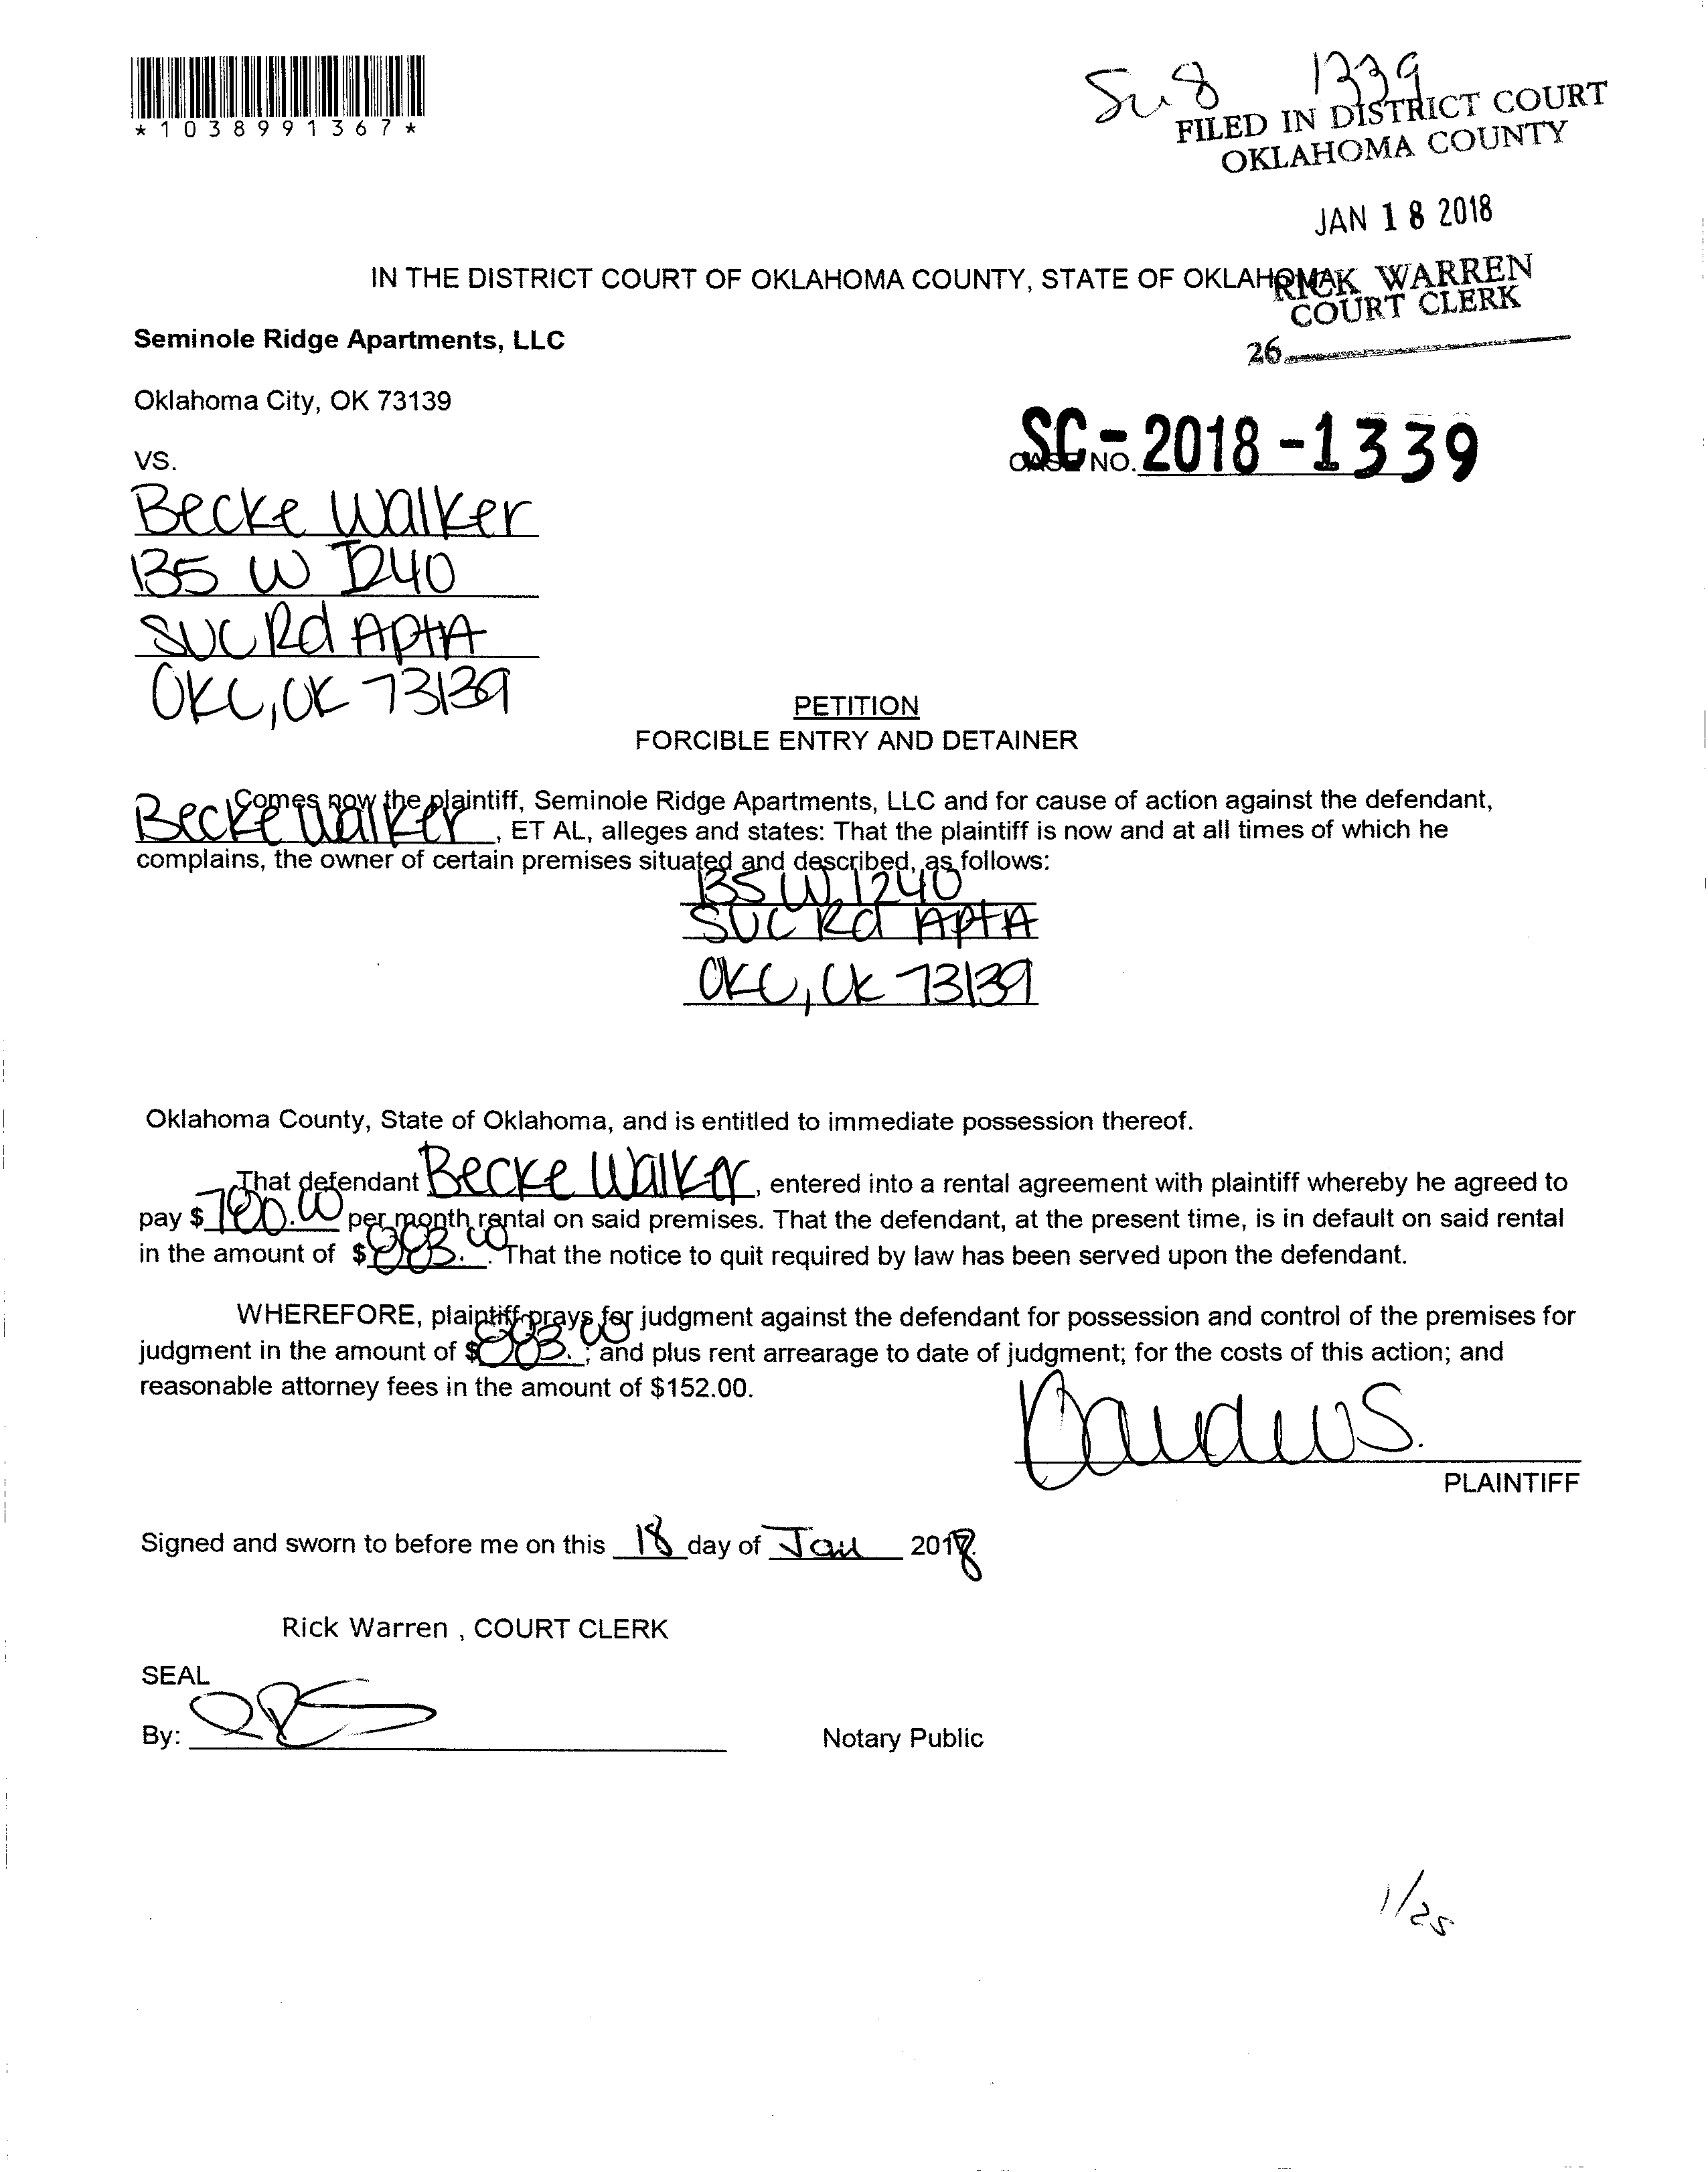 *1038991367*
1339
FILED IN DISTRICT COURT
OKLAHOMA COUNTY
JAN 18 2018
RICK WARREN
COURT CLERK
26
IN THE DISTRICT COURT OF OKLAHOMA COUNTY, STATE OF OKLAHOMA
Seminole Ridge Apartments, LLC
Oklahoma City, OK 73139
VS.
CASE NO. SC-2018-1339
Becke Walker
135 W I240
SVC Rd Apt A
OKC, OK 73139
PETITION
FORCIBLE ENTRY AND DETAINER
Comes now the plaintiff, Seminole Ridge Apartments, LLC and for cause of action against the defendant,
Becke Walker, ET AL, alleges and states: That the plaintiff is now and at all times of which he
complains, the owner of certain premises situated and described, as follows:
135 W I240
SVC Rd Apt A
OKC, OK 73139
Oklahoma County, State of Oklahoma, and is entitled to immediate possession thereof.
That defendant Becke Walker, entered into a rental agreement with plaintiff whereby he agreed to
pay $ per month rental on said premises. That the defendant, at the present time, is in default on said rental
in the amount of $ 883.00. That the notice to quit required by law has been served upon the defendant.
WHEREFORE, plaintiff prays for judgment against the defendant for possession and control of the premises for
judgment in the amount of $ 883.00; and plus rent arrearage to date of judgment; for the costs of this action; and
reasonable attorney fees in the amount of $152.00.
PLAINTIFF
Signed and sworn to before me on this 18 day of Jan 2018
Rick Warren , COURT CLERK
SEAL
By:
Notary Public
1/25